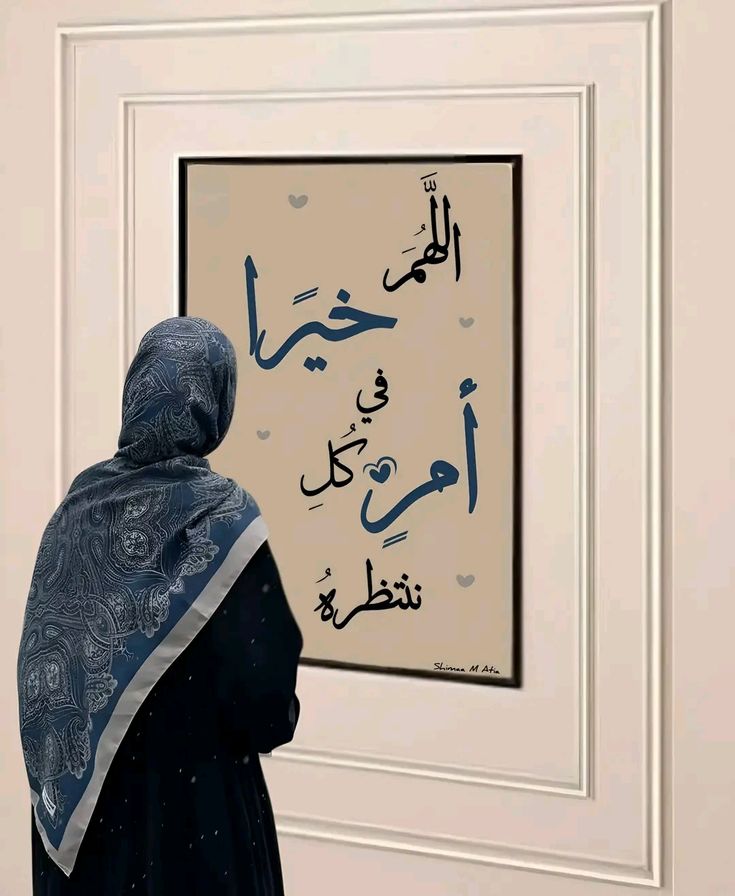 اللَّهُمَ
خيرًا
في
كُلِ أمرٍ
ننتظرهُ
Shimaa M Atia